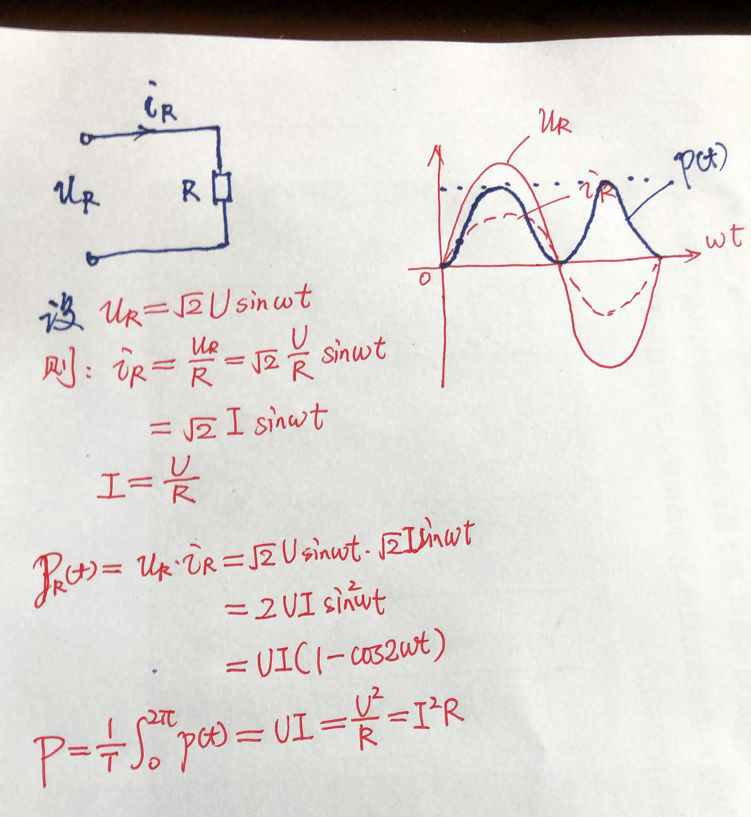 i_R
u_R
R
u_R
p(t)
i_R
ωt
0
设 u_R=√2 U sinωt
则: i_R = u_R/R = √2 U/R sinωt
= √2 I sinωt
I = U/R
p_R(t) = u_R·i_R = √2 U sinωt · √2 I sinωt
= 2UI sin²ωt
= UI(1-cos2ωt)
P = 1/T ∫₀^2π p(t) = UI = U²/R = I²R